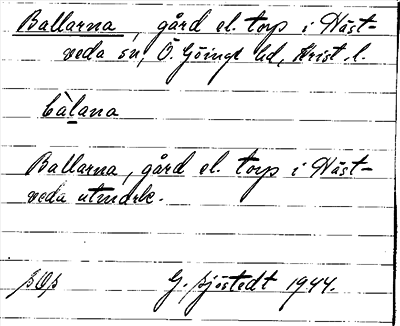 Ballarna, gård el. torp i Näst-
veda sn, Ö. Göinge hd, Krist. l.
bàlana
Ballarna, gård el. torp i Näst-
veda utmark.
G. Sjöstedt 1944.